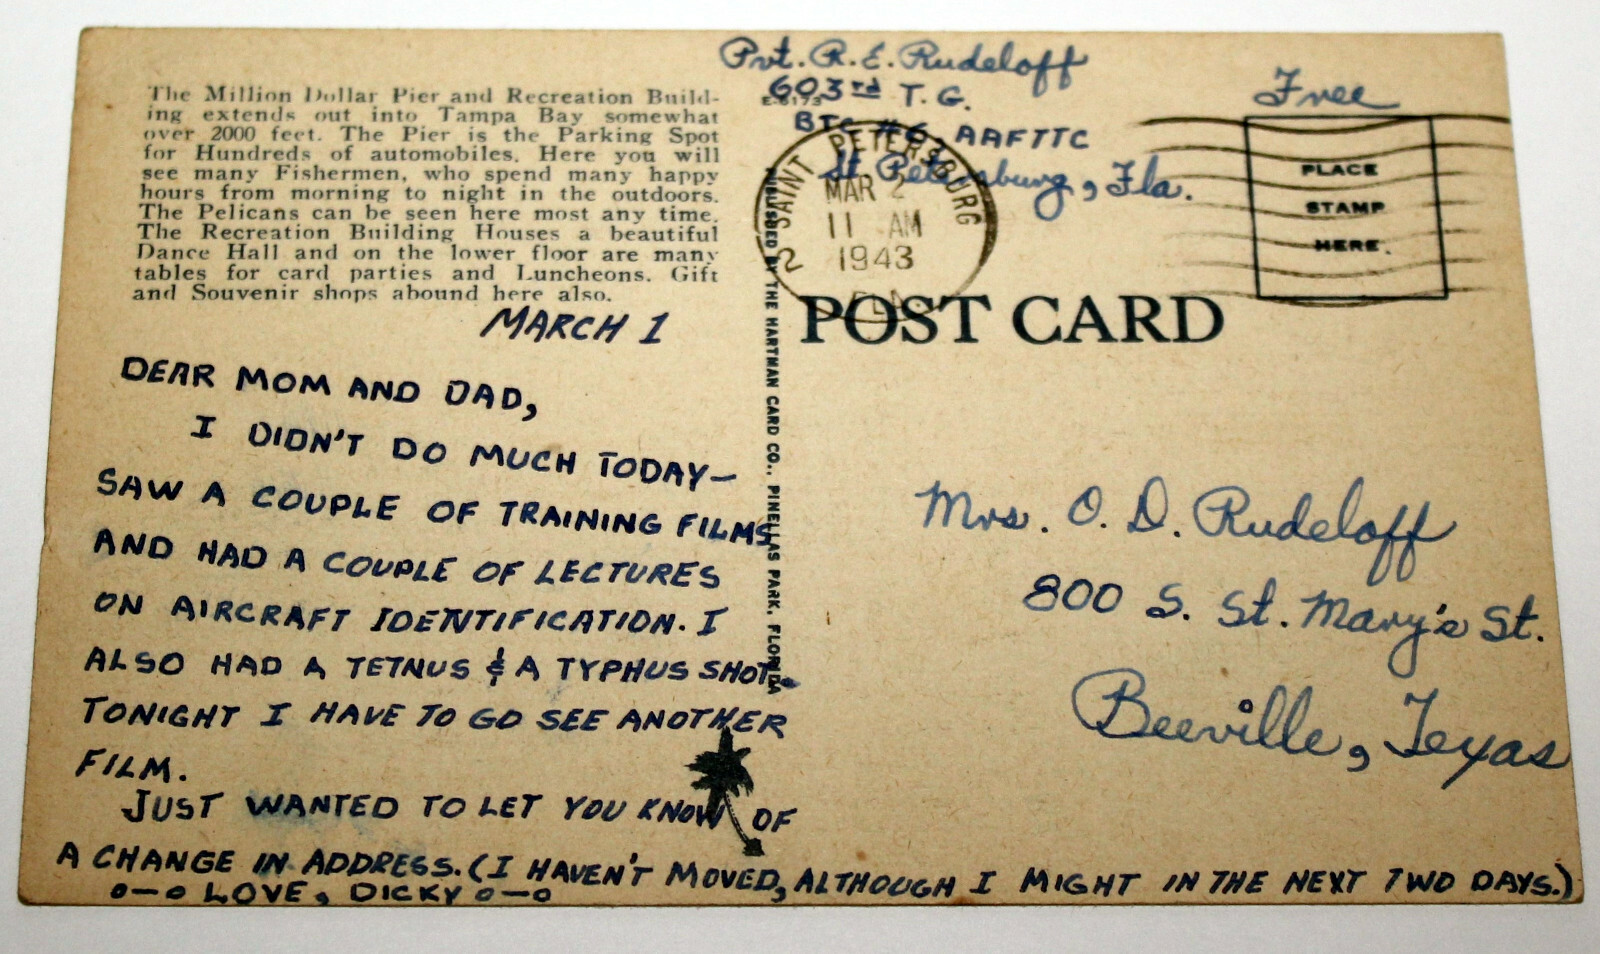 The Million Dollar Pier and Recreation Build-
ing extends out into Tampa Bay somewhat
over 2000 feet. The Pier is the Parking Spot
for Hundreds of automobiles. Here you will
see many Fishermen, who spend many happy
hours from morning to night in the outdoors.
The Pelicans can be seen here most any time.
The Recreation Building Houses a beautiful
Dance Hall and on the lower floor are many
tables for card parties and Luncheons. Gift
and Souvenir shops abound here also.
MARCH 1
DEAR MOM AND DAD,
I DIDN'T DO MUCH TODAY—
SAW A COUPLE OF TRAINING FILMS
AND HAD A COUPLE OF LECTURES
ON AIRCRAFT IDENTIFICATION. I
ALSO HAD A TETNUS & A TYPHUS SHOT.
TONIGHT I HAVE TO GO SEE ANOTHER
FILM.
JUST WANTED TO LET YOU KNOW OF
A CHANGE IN ADDRESS. (I HAVEN'T MOVED, ALTHOUGH I MIGHT IN THE NEXT TWO DAYS.)
o—o LOVE, DICKY o—o
PUBLISHED BY THE HARTMAN CARD CO., PINELLAS PARK, FLORIDA
Pvt. R. E. Rudeloff
603rd T. G.
BTC #6, AAFTTC
St. Petersburg, Fla.
SAINT PETERSBURG
MAR 2
11 AM
1943
2
FLA
Free
PLACE
STAMP
HERE.
POST CARD
Mrs. O. D. Rudeloff
800 S. St. Mary's St.
Beeville, Texas